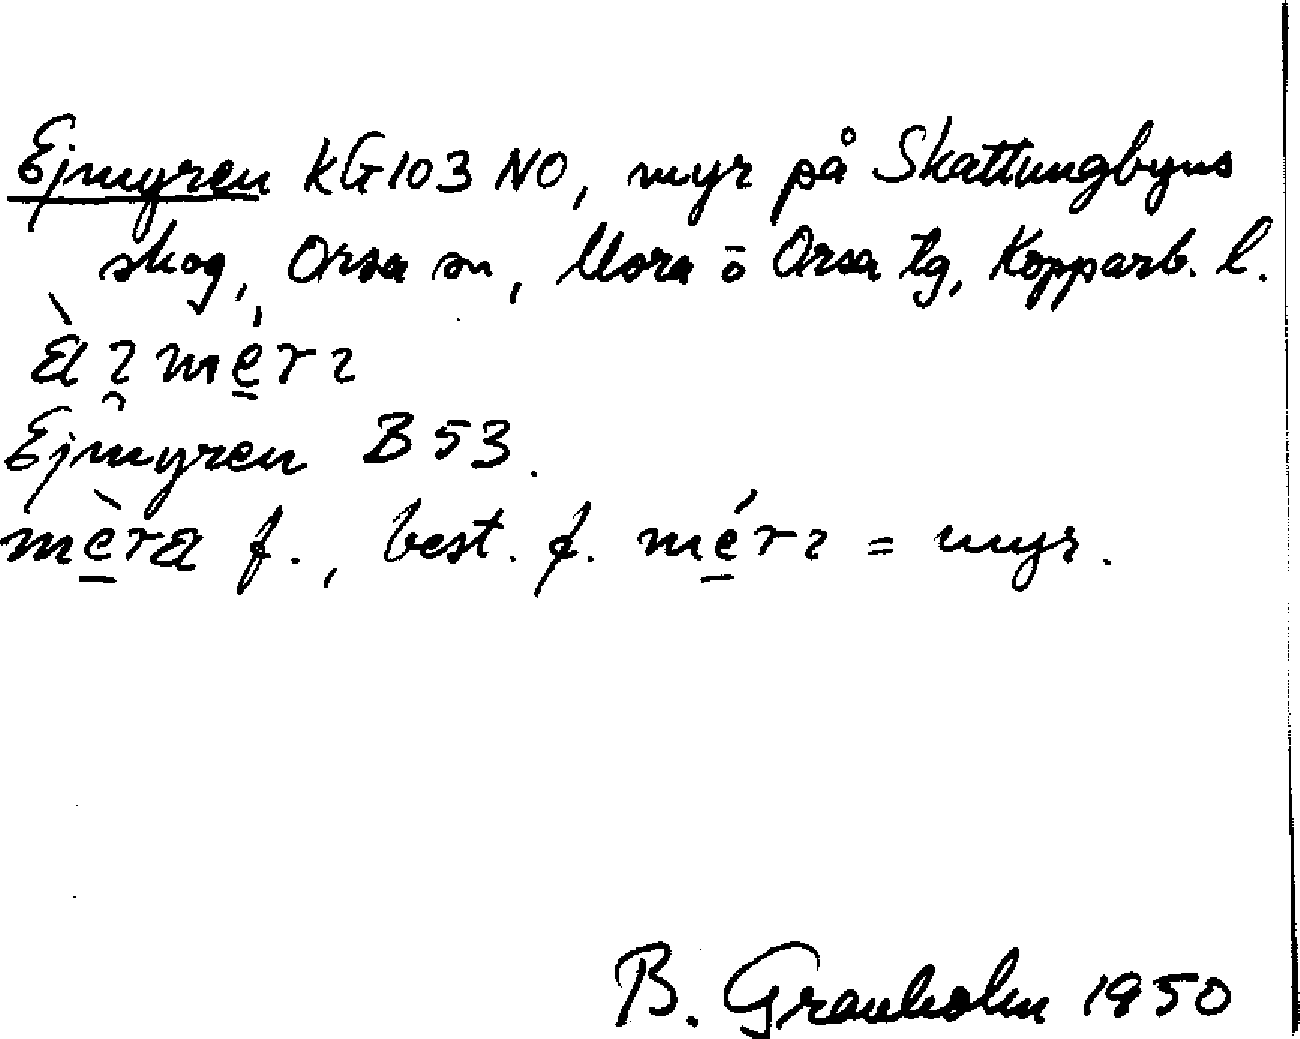 Ejmyren KG103 NO, myr på Skattungbyns
skog, Orsa sn, Mora o Orsa tg, Kopparb. l.
Ejmyren B 53.
f., best. f. = myr.
B. Granholm 1950